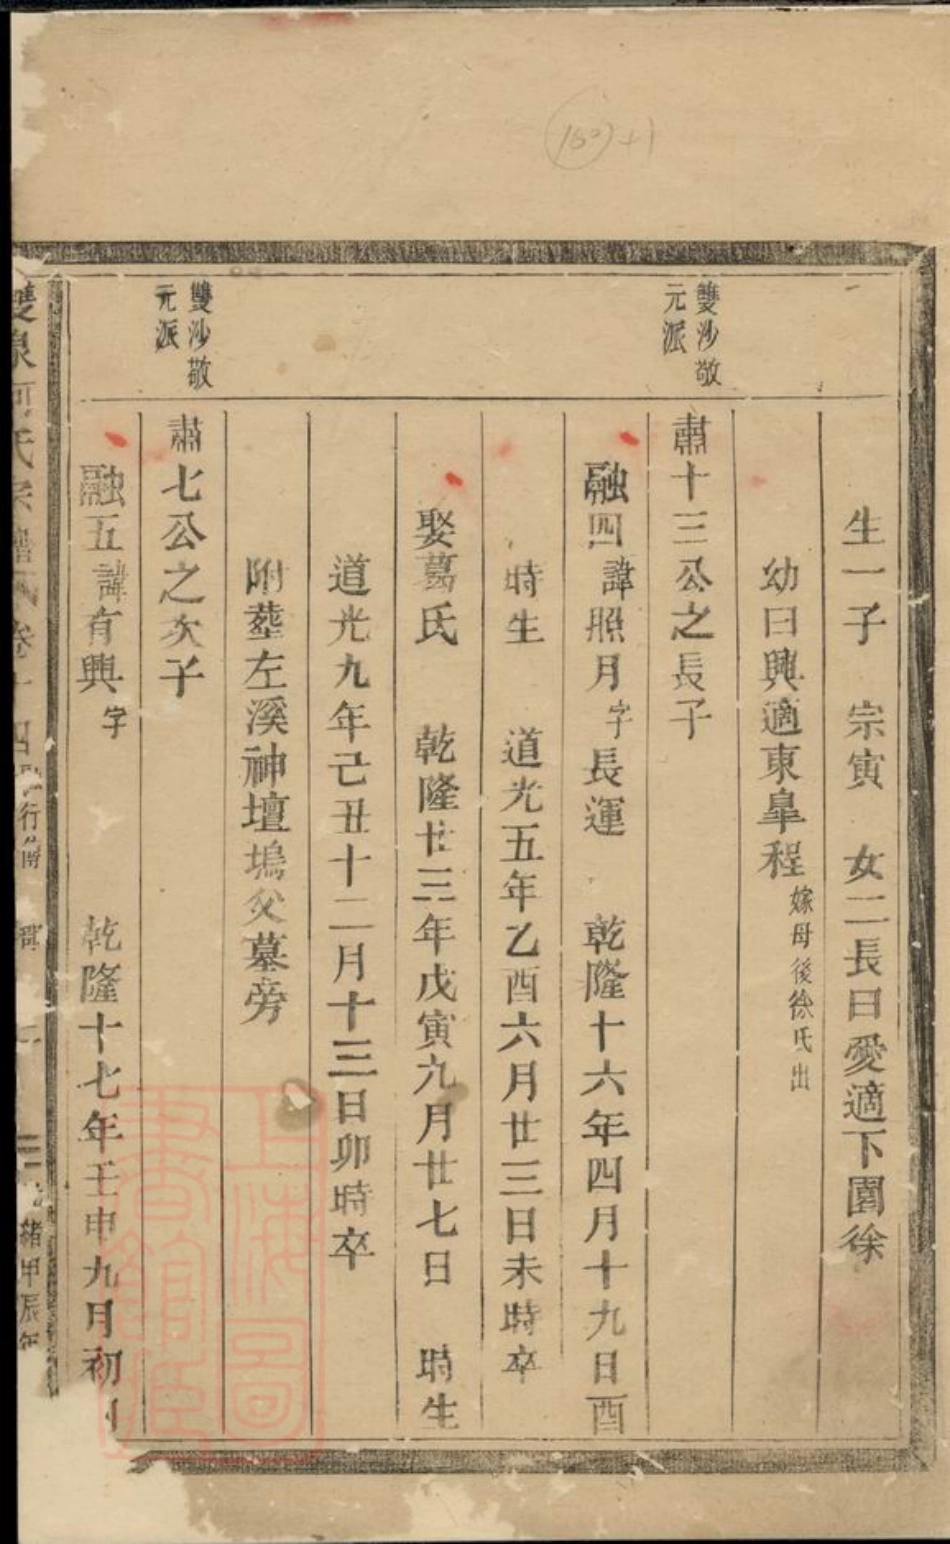 生一子 宗寅 女二長曰愛適下園徐
幼曰興適東臯程嫁母後徐氏出
雙沙敬
元派
肅十三公之長子
融四諱照月字長運 乾隆十六年四月十九日酉
時生 道光五年乙酉六月廿三日未時卒
娶葛氏 乾隆廿三年戊寅九月廿七日 時生
道光九年己丑十二月十三日卯時卒
附塟左溪神壇塢父墓旁
雙沙敬
元派
肅七公之次子
融五諱有興字 乾隆十七年壬申九月初
雙泉 氏宗譜 卷十四 行
緒甲辰年
上海圖書館藏